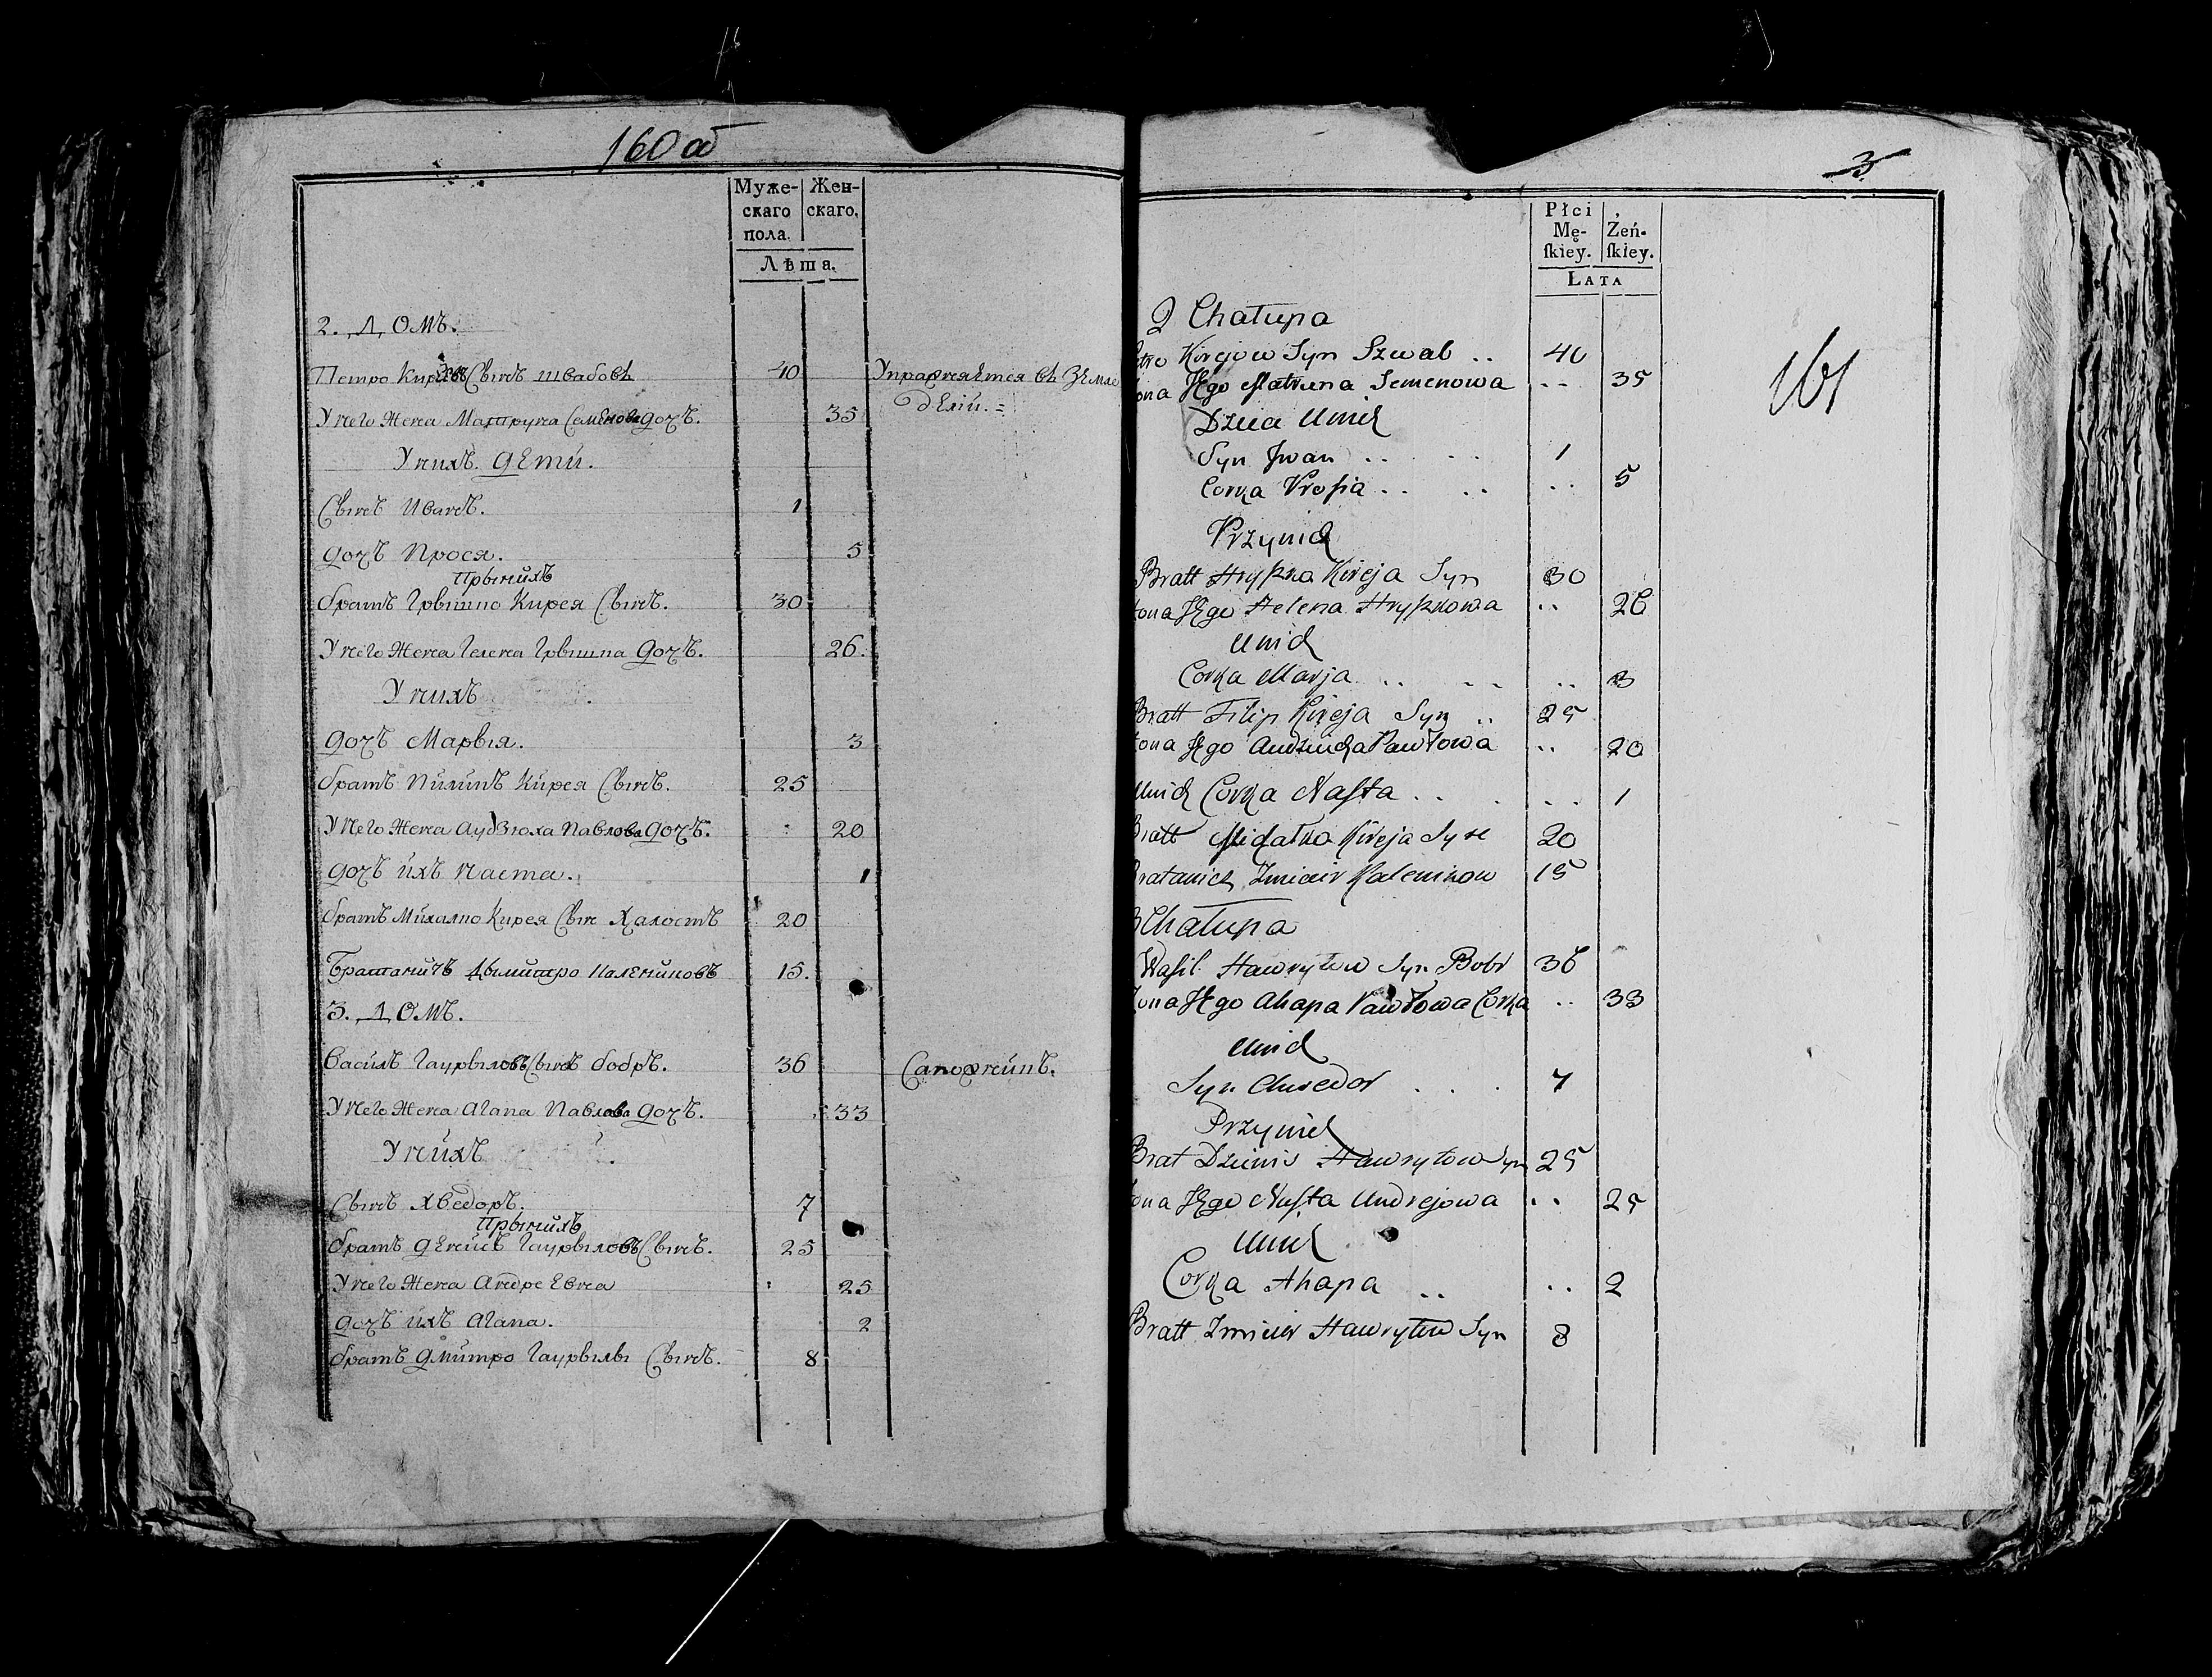 160 об
Муже- Жен-
скаго скаго.
пола.
Лѣта.
2. ДОМЪ.
Петро Киреевъ Сынъ Швабовъ 40 Упражняется въ Земле
делии. =
У него Жена Матруна Семенова дочъ. 35
У нихъ дети.
Сынъ Иванъ. 1
дочъ Прося. 5
При нихъ
братъ Грышко Кирея Сынъ. 30
У него Жена Гелена Грышка дочъ. 26.
У нихъ
дочъ Марыя. 3
братъ Пилипъ Кирея Сынъ. 25
У него Жена Аудзюха Павлова дочъ. 20
дочъ ихъ Наста. 1
братъ Михалко Кирея Сынъ Халостъ 20
Братаничъ Дымитро Калениновъ 15.
3. ДОМЪ.
Василъ Гаурыловъ Сынъ бобръ. 36 Сапожникъ.
У него Жена Агапа Павлова дочъ. 33
У нихъ
Сынъ Хведоръ. 7
При нихъ
братъ Денисъ Гаурыловъ Сынъ. 25
У него Жена Андреевна 25
дочъ ихъ Агапа. 2
братъ дмитро Гаурылы Сынъ. 8
3
161
Płci Żeń-
Mę- ſkiey.
ſkiey.
LATA
2 Chałupa
Kirejow Syn Szwab .. 40
Jego Matruna Semenowa .. 35
Dzieci Unich
Syn Jwan .. 1
Corka Prosia .. .. 5
Przynich
Bratt Hryszka Kireja Syn 30
Jego Helena Hryszkowa .. 26
Unich
Corka Marja .. 3
Bratt Filip Kireja Syn .. 25
Jego Audziucha Pawłowa .. 20
Unich Corka Nasta .. 1
Bratt Michałka Kireja Syn 20
Bratanich Zmicier Kaleninow 15
3 Chałupa
Wasil Hawryłow Syn Bobr 36
Żona Jego Ahapa Pawłowa Corka .. 33
Unich
Syn Chwedor 7
Przynich
Brat Dzienis Hawryłow Syn 25
Jego Nasta Andrejowa .. 25
Unich
Corka Ahapa .. .. 2
Bratt Zmicier Hawryłow Syn 8